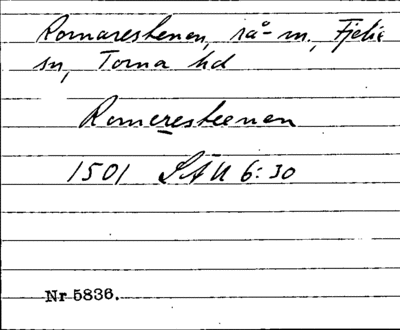 Romarestenen, rå-m., Fjelie
sn, Torna hd
Romeresteenen
1501 SÄU 6:30
Nr 5836.